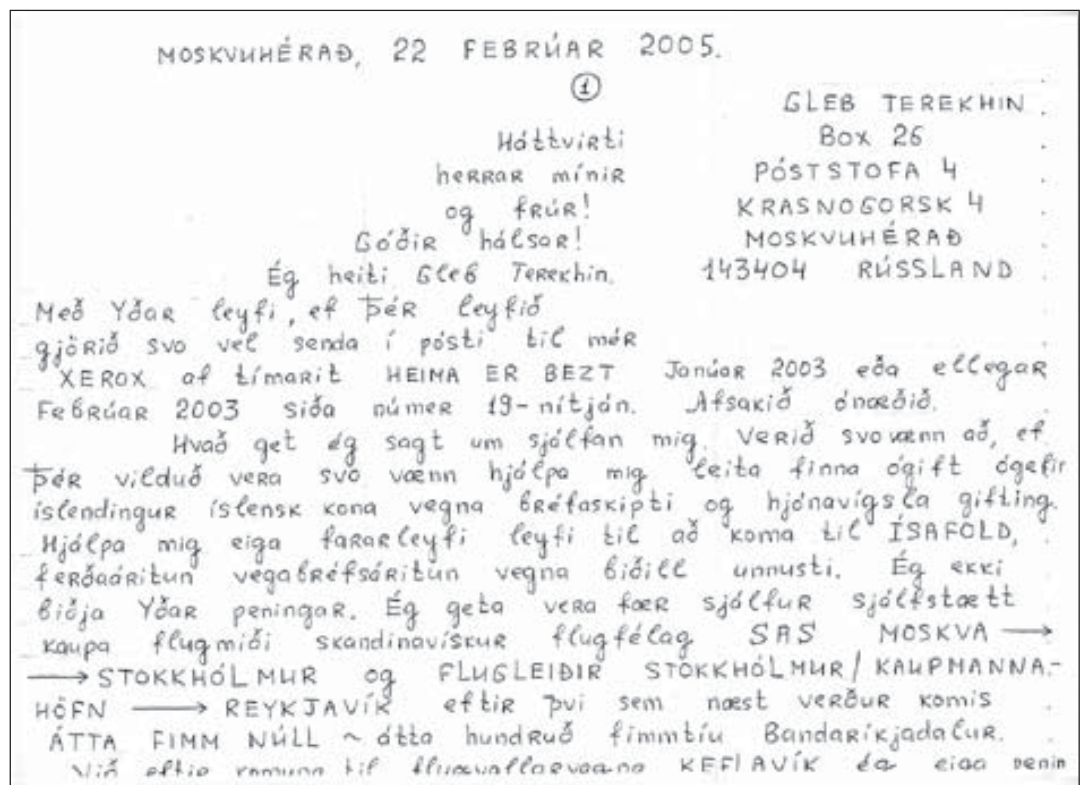 MOSKVUHÉRAÐ, 22 FEBRÚAR 2005.
1
GLEB TEREKHIN
Box 26
PÓSTSTOFA 4
KRASNOGORSK 4
MOSKVUHÉRAÐ
143404 RÚSSLAND
Háttvirti
herrar mínir
og frúr!
Góðir hálsar!
Ég heiti Gleb Terekhin.
Með Yðar leyfi, ef Þér leyfið
gjörið svo vel senda í pósti til mér
XEROX af tímarit HEIMA ER BEZT Janúar 2003 eða ellegar
Febrúar 2003 síða númer 19-nítján. Afsakið ónæðið.
Hvað get ég sagt um sjálfan mig. Verið svo vænn að, ef
Þér vilduð vera svo vænn hjálpa mig leita finna ógift ógefir
íslendingur íslensk kona vegna bréfaskipti og hjónavígsla gifting.
Hjálpa mig eiga fararleyfi leyfi til að koma til ÍSAFOLD,
ferðaáritun vegabréfsáritun vegna biðill unnusti. Ég ekki
biðja Yðar peningar. Ég geta vera fær sjálfur sjálfstætt
kaupa flugmiði skandinavískur flugfélag SAS MOSKVA →
→ STOKKHÓLMUR og FLUGLEIÐIR STOKKHÓLMUR/KAUPMANNA-
HÖFN → REYKJAVÍK eftir því sem næst verður komis
ÁTTA FIMM NÚLL ~ átta hundruð fimmtíu Bandaríkjadalur.
Við eftir til KEFLAVÍK ég eiga